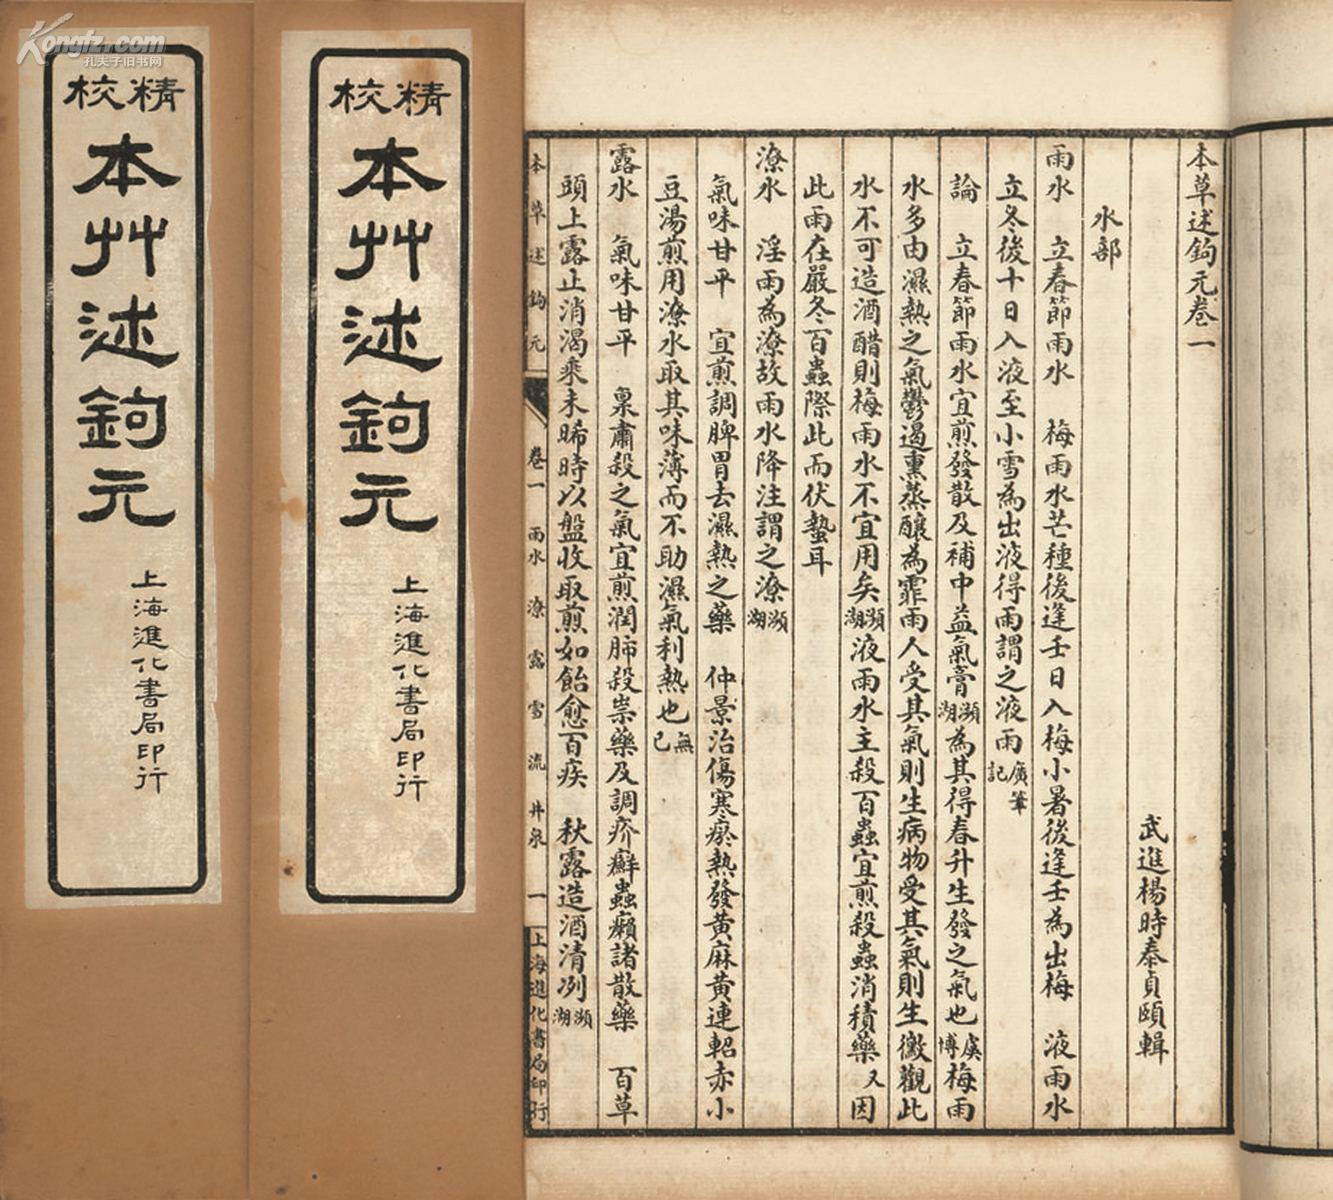 Kongfz.com
孔夫子旧书网
精校
本艸述鉤元
上海進化書局印行
精校
本艸述鉤元
上海進化書局印行
本草述鉤元卷一
武進楊時泰貞頤輯
水部
雨水　立春節雨水　梅雨水芒種後逢壬日入梅小暑後逢壬為出梅　液雨水
立冬後十日入液至小雪為出液得雨謂之液雨廣筆記
論　立春節雨水宜煎發散及補中益氣膏瀕湖為其得春升生發之氣也虞博梅雨
水多由濕熱之氣鬱遏熏蒸釀為霏雨人受其氣則生病物受其氣則生黴觀此
水不可造酒醋則梅雨水不宜用矣瀕湖液雨水主殺百蟲宜煎殺蟲消積藥又因
此雨在嚴冬百蟲際此而伏蟄耳
潦水　淫雨為潦故雨水降注謂之潦瀕湖
氣味甘平　宜煎調脾胃去濕熱之藥　仲景治傷寒瘀熱發黃麻黃連軺赤小
豆湯煎用潦水取其味薄而不助濕氣利熱也無己
露水　氣味甘平　稟肅殺之氣宜煎潤肺殺祟藥及調疥癬蟲癩諸散藥　百草
頭上露止消渴乘未晞時以盤收取煎如飴愈百疾　秋露造酒清冽瀕湖
本草述鉤元　卷一　雨水　潦　露　雪　流　井泉　一　上海進化書局印行